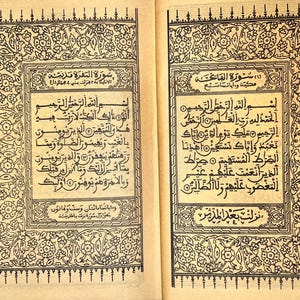 (١) سورة الفاتحة
مكية وآياتها سبع
بسم الله الرحمن الرحيم
الحمد لله رب العلمين الرحمن
الرحيم ملك يوم الدين إياك
نعبد وإياك نستعين اهدنا
الصرط المستقيم صرط
الذين أنعمت عليهم غير
المغضوب عليهم ولا الضالين
نزلت بعد المدثر
سورة البقرة مدنية
بسم الله الرحمن الرحيم
الم ذلك الكتب لا ريب فيه
هدى للمتقين الذين يؤمنون
بالغيب ويقيمون الصلوة ومما
رزقنهم ينفقون والذين يؤمنون
بما أنزل إليك وما أنزل من قبلك
وبالآخرة هم يوقنون أولئك